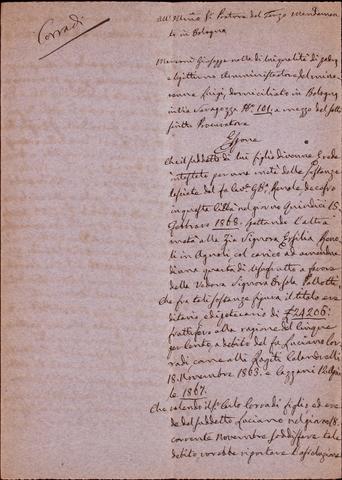 Corradi
All' Ill.mo Sig. Pretore del Terzo Mandamen-
to in Bologna
Marconi Giuseppe nella di lui qualità di padre
e legittimo Amministratore del mino-
renne Luigi, domiciliato in Bologna
in Via Saragozza N.º 101, a mezzo del sotto
scritto Procuratore
Espone
Che il suddetto di lui figlio divenne Erede
intestato per una metà delle sostanze
lasciate dal fu decesso
in questa Città nel giorno quindici 15
Febbraro 1868. spettando l'altra
metà alla Zia Signora Ersilia
in col carico ad amendue
di una quarta di Usufrutto a favore
della Vedova Signora Orsola Pallotti.
Che fra tali sostanze figura il titolo cre
ditorio, ed ipotecario di £24206:
fruttifero alla ragione del cinque
per cento, a debito del fu Luciano Cor
radi come alli Rogiti Calendrelli
18. Novembre 1863. e Lazzari
le 1867.
Che volendo il Sig. Carlo Corradi figlio ed ere
de del suddetto Luciano nel giorno 18.
corrente Novembre soddisfare tale
debito vorrebbe riportare l'